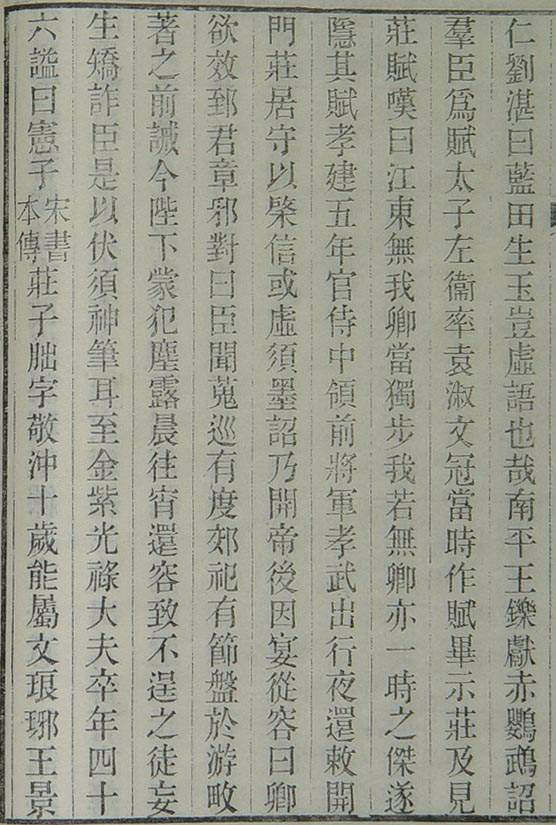 仁劉湛曰藍田生玉豈虛語也哉南平王鑠獻赤鸚鵡詔
羣臣爲賦太子左衞率袁淑文冠當時作賦畢示莊及見
莊賦嘆曰江東無我卿當獨步我若無卿亦一時之傑遂
隱其賦孝建五年官侍中領前將軍孝武出行夜還敕開
門莊居守以棨信或虛須墨詔乃開帝後因宴從容曰卿
欲效郅君章邪對曰臣聞蒐巡有度郊祀有節盤於游畋
著之前誡今陛下蒙犯塵露晨往宵還容致不逞之徒妄
生矯詐臣是以伏須神筆耳至金紫光祿大夫卒年四十
六謚曰憲子宋書本傳莊子朏字敬沖十歲能屬文琅琊王景